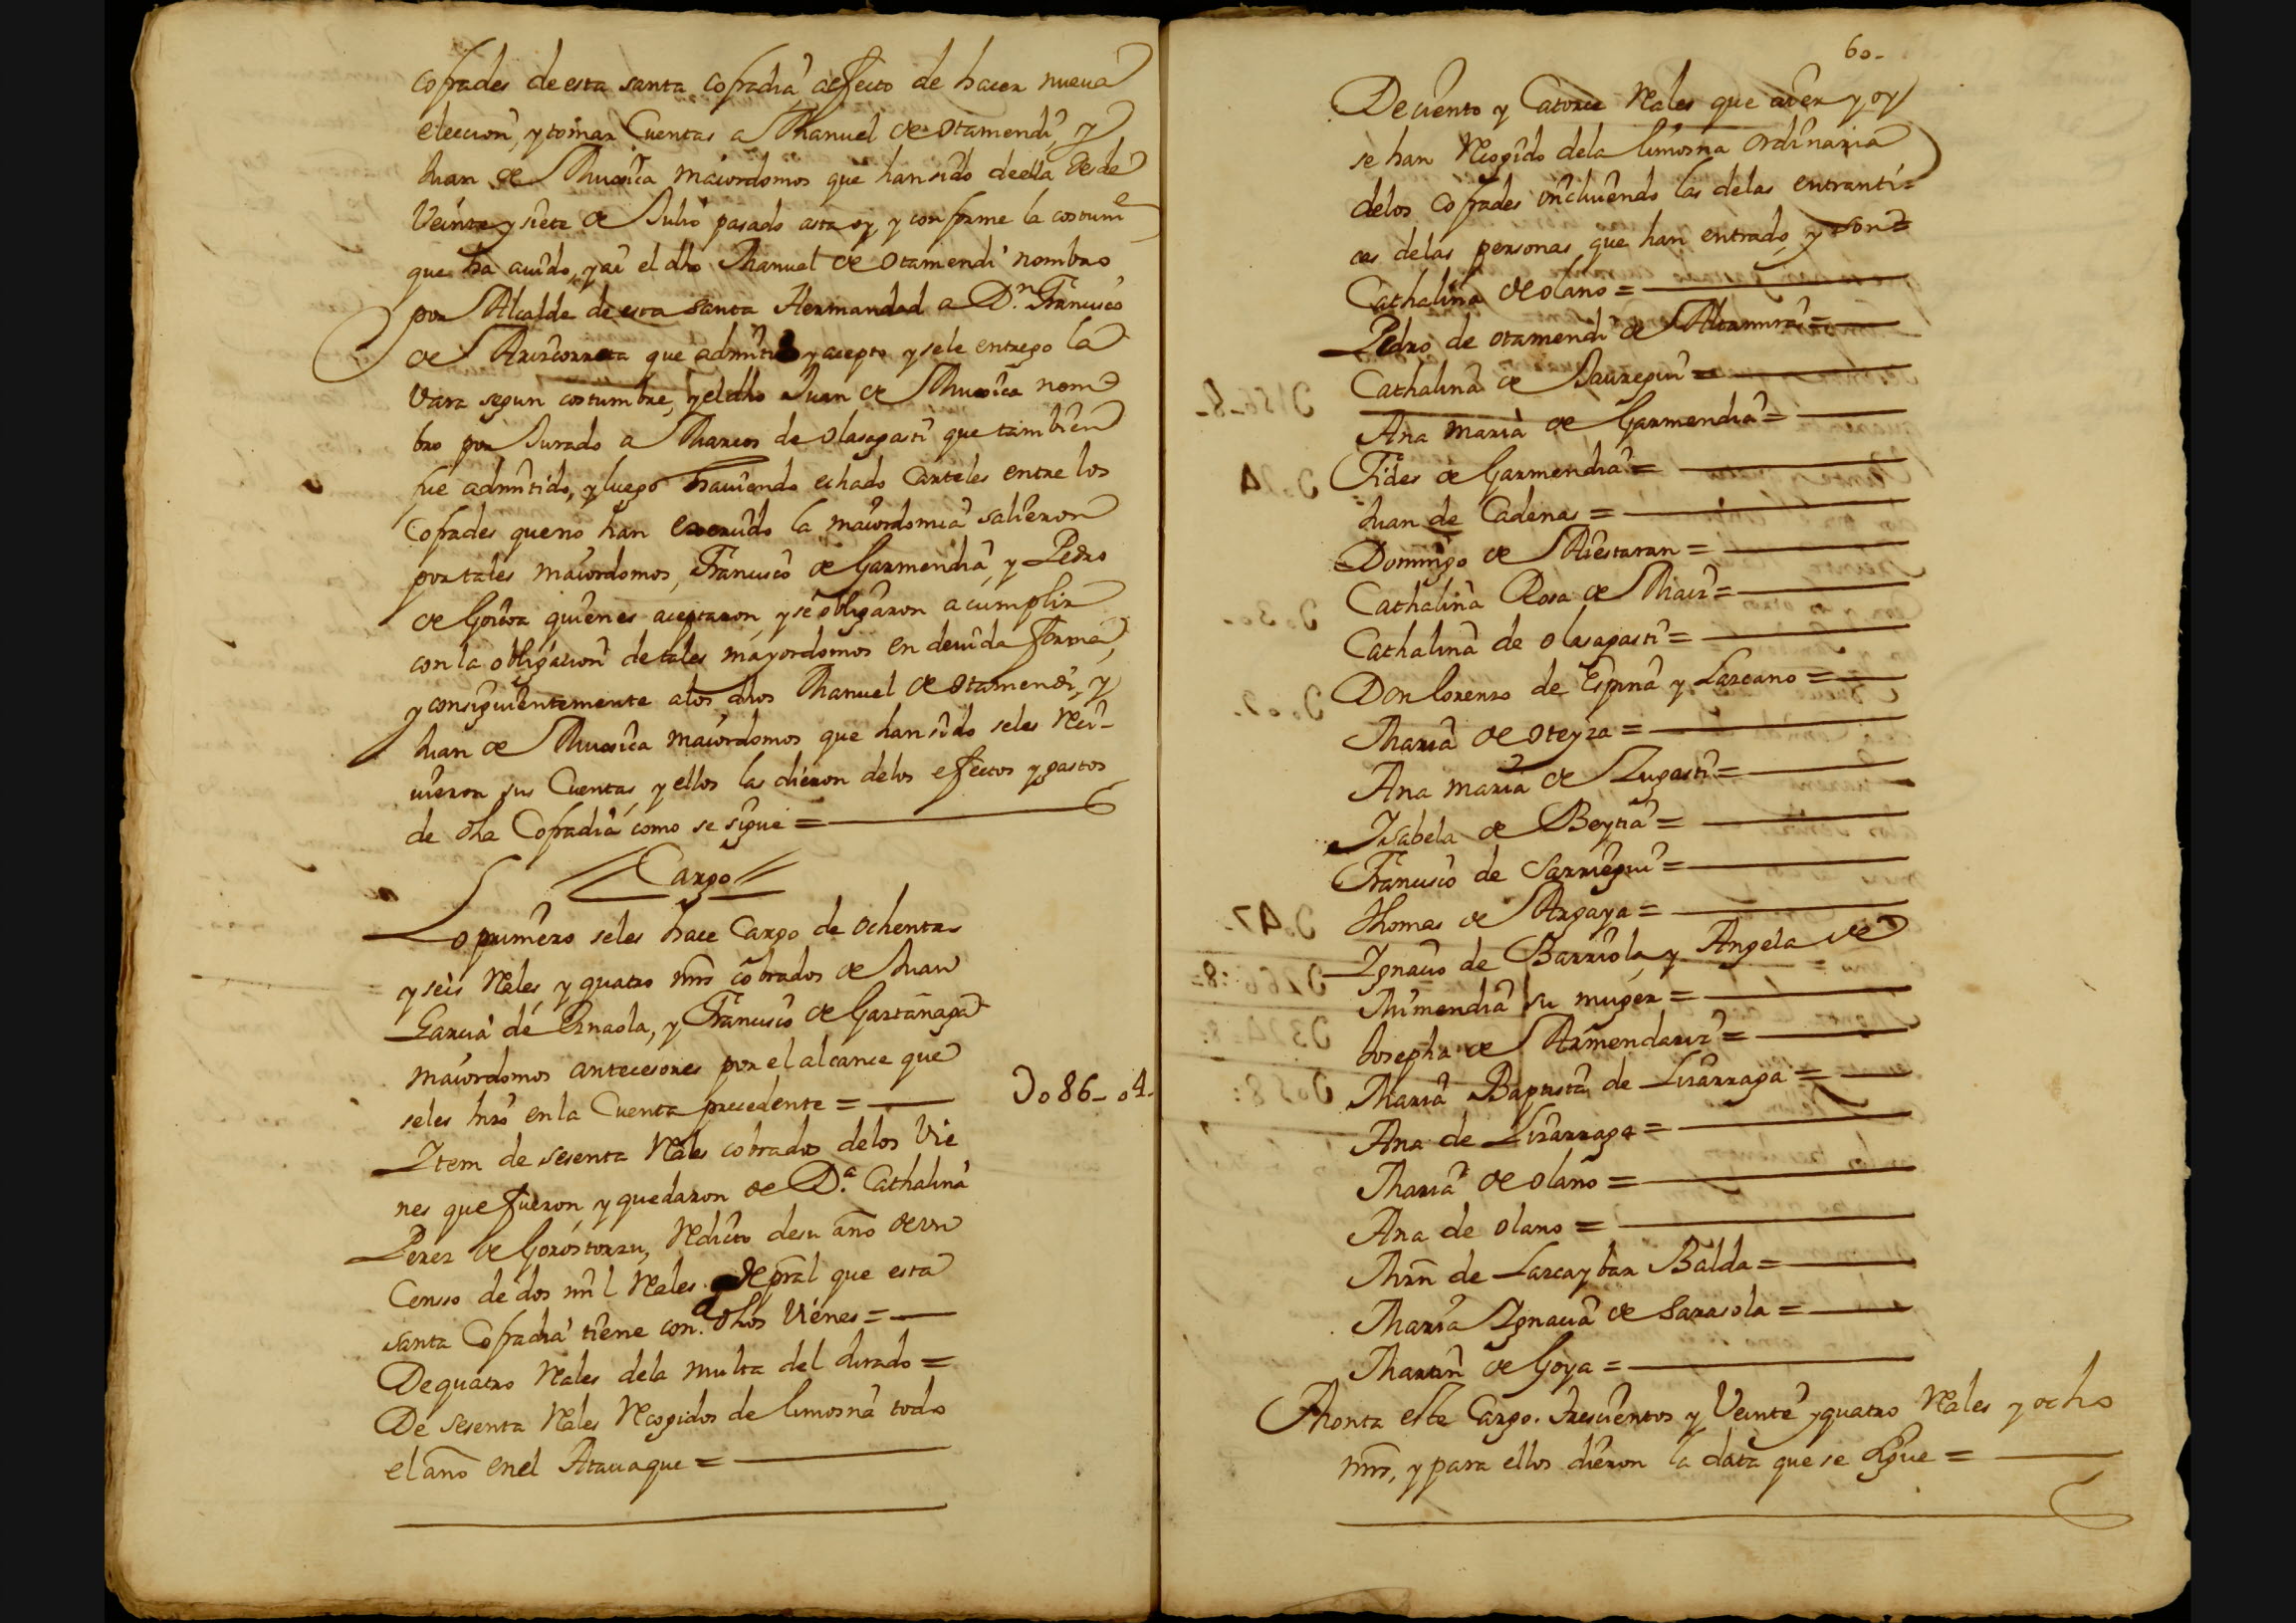 cofrades de esta santa cofradia aefecto de hacer nueua
eleccion, y tomar Cuentas a Manuel de otamendi, y
Juan de Muxica maiordomos que han sido de ella desde
Veinte y siete de Julio pasado asta oy, y conforme la costume
que ha auido, y asi el dho Manuel de otamendi nombro
por Alcalde de esta santa Hermandad a Dn. Francisco
de Arizcorreta que admitio y acepto y sele entrego la
Vara segun costumbre, y el dho Juan de Muxica nom
bro por Jurado a Marcos de olasagasti que tambien
fue admitido, y luego hauiendo echado Carteles entre los
Cofrades que no han exercido la maiordomia salieron
por tales maiordomos, Francisco de Garmendia, y Pedro
de Goicoa quienes aceptaron, y se obligaron a cumplir
con la obligacion de tales mayordomos en deuida forma,
y consiguientemente alos dhos Manuel de otamendi, y
Juan de Muxica maiordomos que han sido seles reci-
uieron sus Cuentas, y ellos las dieron delos efectos y gastos
de dha Cofradia como se sigue =
Cargo
Lo primero seles hace Cargo de ochenta
y seis Reales y quatro mrs cobrados de Juan
Garcia de Ernaola, y Francisco de Gaztañaga
maiordomos antecesores por el alcance que
seles hizo en la Cuenta precedente =
Do86-04-
Item de sesenta Reales cobrados delos Vie
nes que fueron y quedaron de Da. Cathalina
Perez de Gorostorzu, Redito de su año de vn
Censo de dos mil Reales de pral que esta
santa Cofradia tiene con dhos Vienes =
De quatro Reales dela multa del Jurado =
De sesenta Reales Recogidos de limosna todo
el año en el Atauaque =
60-
De ciento y Catorce Reales que ayer y oy
se han Recogido dela limosna ordinaria
delos Cofrades incluiendo las delas entranti=
cas delas personas que han entrado, y son =
Cathalina de olano =
Pedro de otamendi de Altamira =
Cathalina de Jauregui =
Ana maria de Garmendia =
Fides de Garmendia =
Juan de Cadenas =
Domingo de Aiestaran =
Cathalina Rosa de Maiz =
Cathalina de olasagasti =
Don Lorenzo de Espina y Lazcano =
Maria de oteyza =
Ana maria de Zugasti =
Isabela de Beytia =
Francisco de Sarriegui =
Thomas de Argaya =
Ignacio de Barriola, y Angela de
Mimendia su muger =
Josepha de Armendariz =
Maria Baptista de Lizarraga =
Ana de Lizarraga =
Maria de olano =
Ana de olano =
Mrn de Lazcaybar Balda =
Maria Ignacia de Sarasola =
Martin de Goya =
Monta este Cargo. Trescientos y Veinte y quatro Reales y ocho
mrs, y para ellos dieron la data que se sigue =